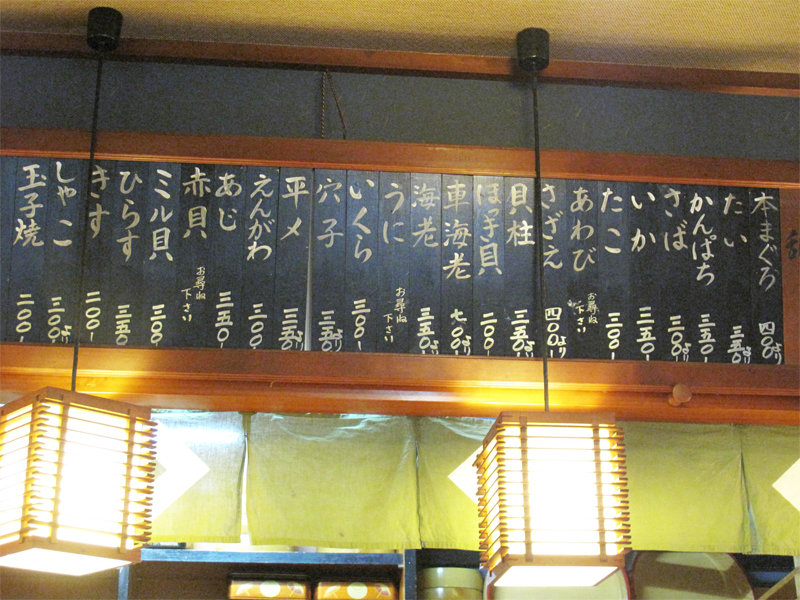 本まぐろ 四〇〇より
たい 三五〇より
かんぱち 三五〇-
さば 三〇〇より
いか 三五〇-
たこ 二〇〇-
あわび お尋ね下さい
さざえ 四〇〇より
貝柱 三五〇より
ほっき貝 二〇〇-
車海老 七〇〇より
海老 三五〇より
うに お尋ね下さい
いくら 三〇〇-
穴子 三五〇より
平メ 三五〇より
えんがわ 三〇〇-
あじ 三五〇-
赤貝 お尋ね下さい
ミル貝 三〇〇
ひらす 三五〇-
きす 二〇〇-
しゃこ 三〇〇より
玉子焼 二〇〇-